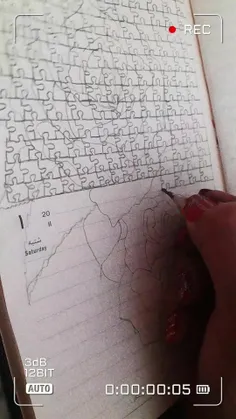 REC
20
شنبه
Saturday
3dB
12BIT
AUTO
0:00:00:05